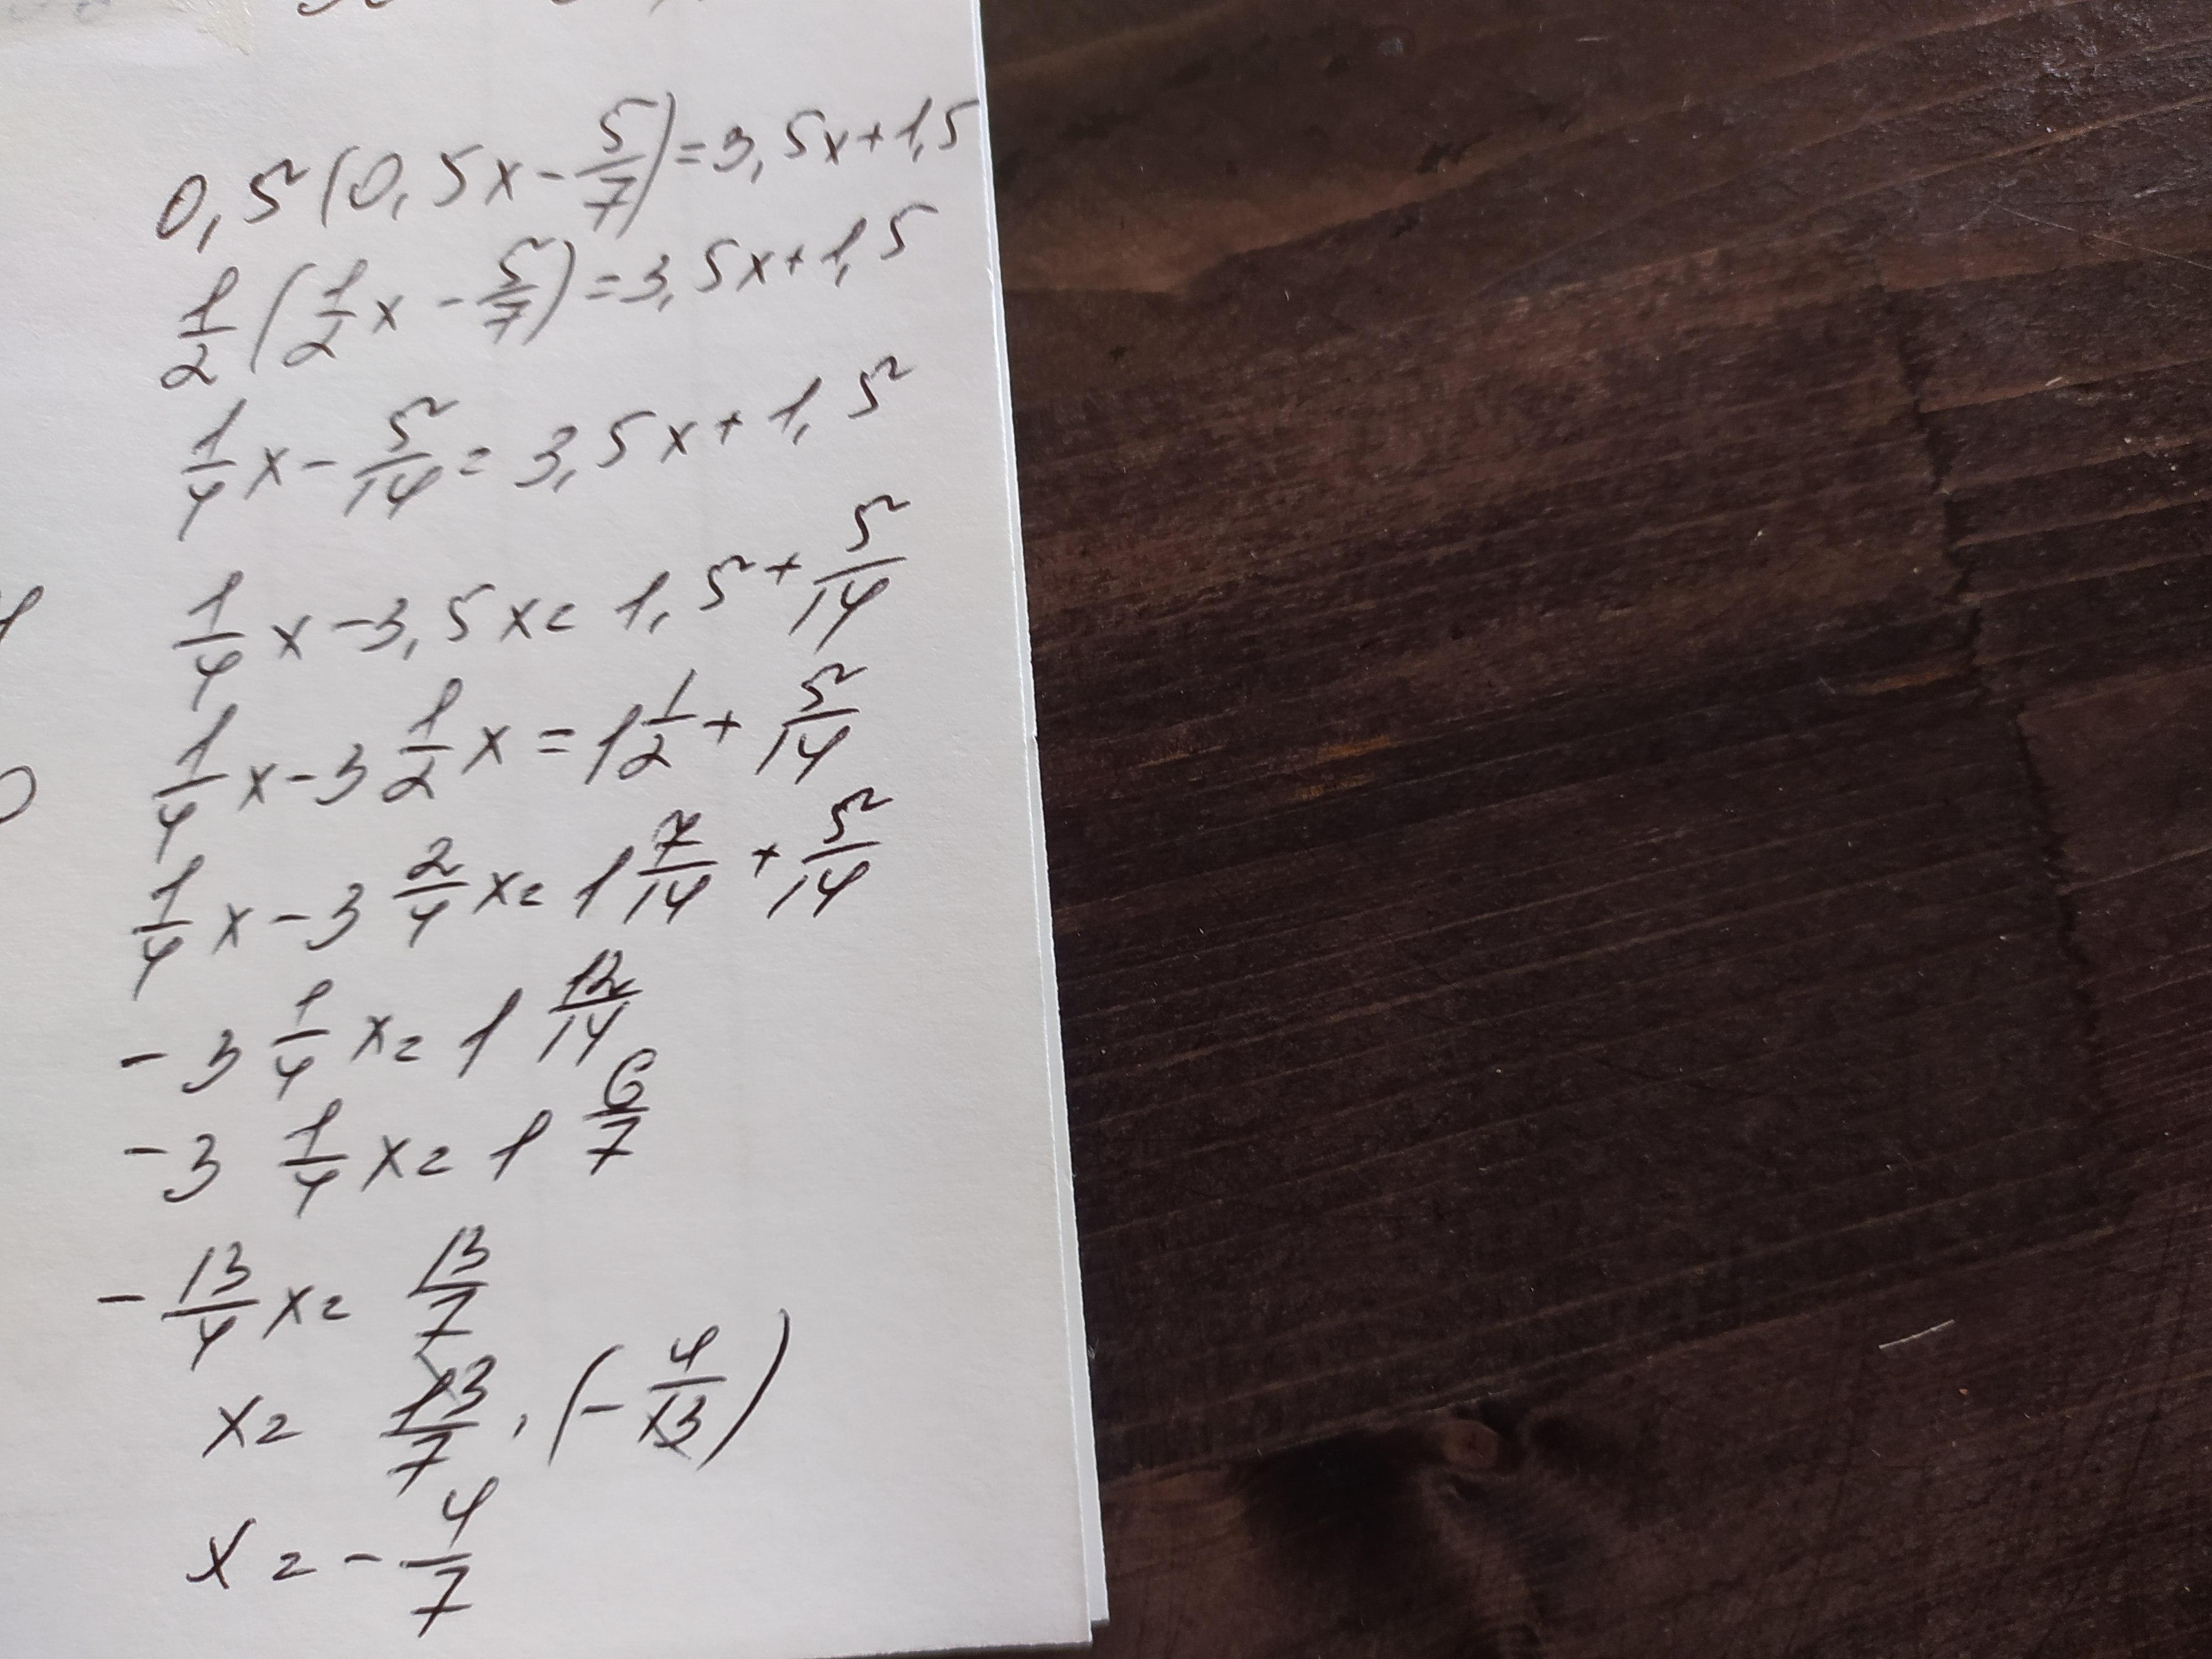 0,5(0,5x-5/7)=3,5x+1,5
1/2(1/2x-5/7)=3,5x+1,5
1/4x-5/14=3,5x+1,5
1/4x-3,5x=1,5+5/14
1/4x-3 1/2x=1 1/2+5/14
1/4x-3 2/4x=1 7/14+5/14
-3 1/4x=1 12/14
-3 1/4x=1 6/7
-13/4x=13/7
x=13/7·(-4/13)
x=-4/7